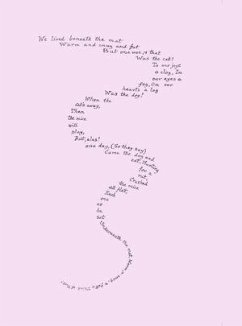 We lived beneath the mat
Warm and snug and fat
But one woe, & that
Was the cat!
To our joys
a clog, In
our eyes a
fog, On our
hearts a log
Was the dog!
When the
cat's away,
Then
the mice
will
play,
But, alas!
one day, (So they say)
Came the dog and
cat, Hunting
for a
rat,
Crushed
the mice
all flat,
Each
one
as
he
sat
Underneath the mat, Warm, & snug, & fat. Think of that!